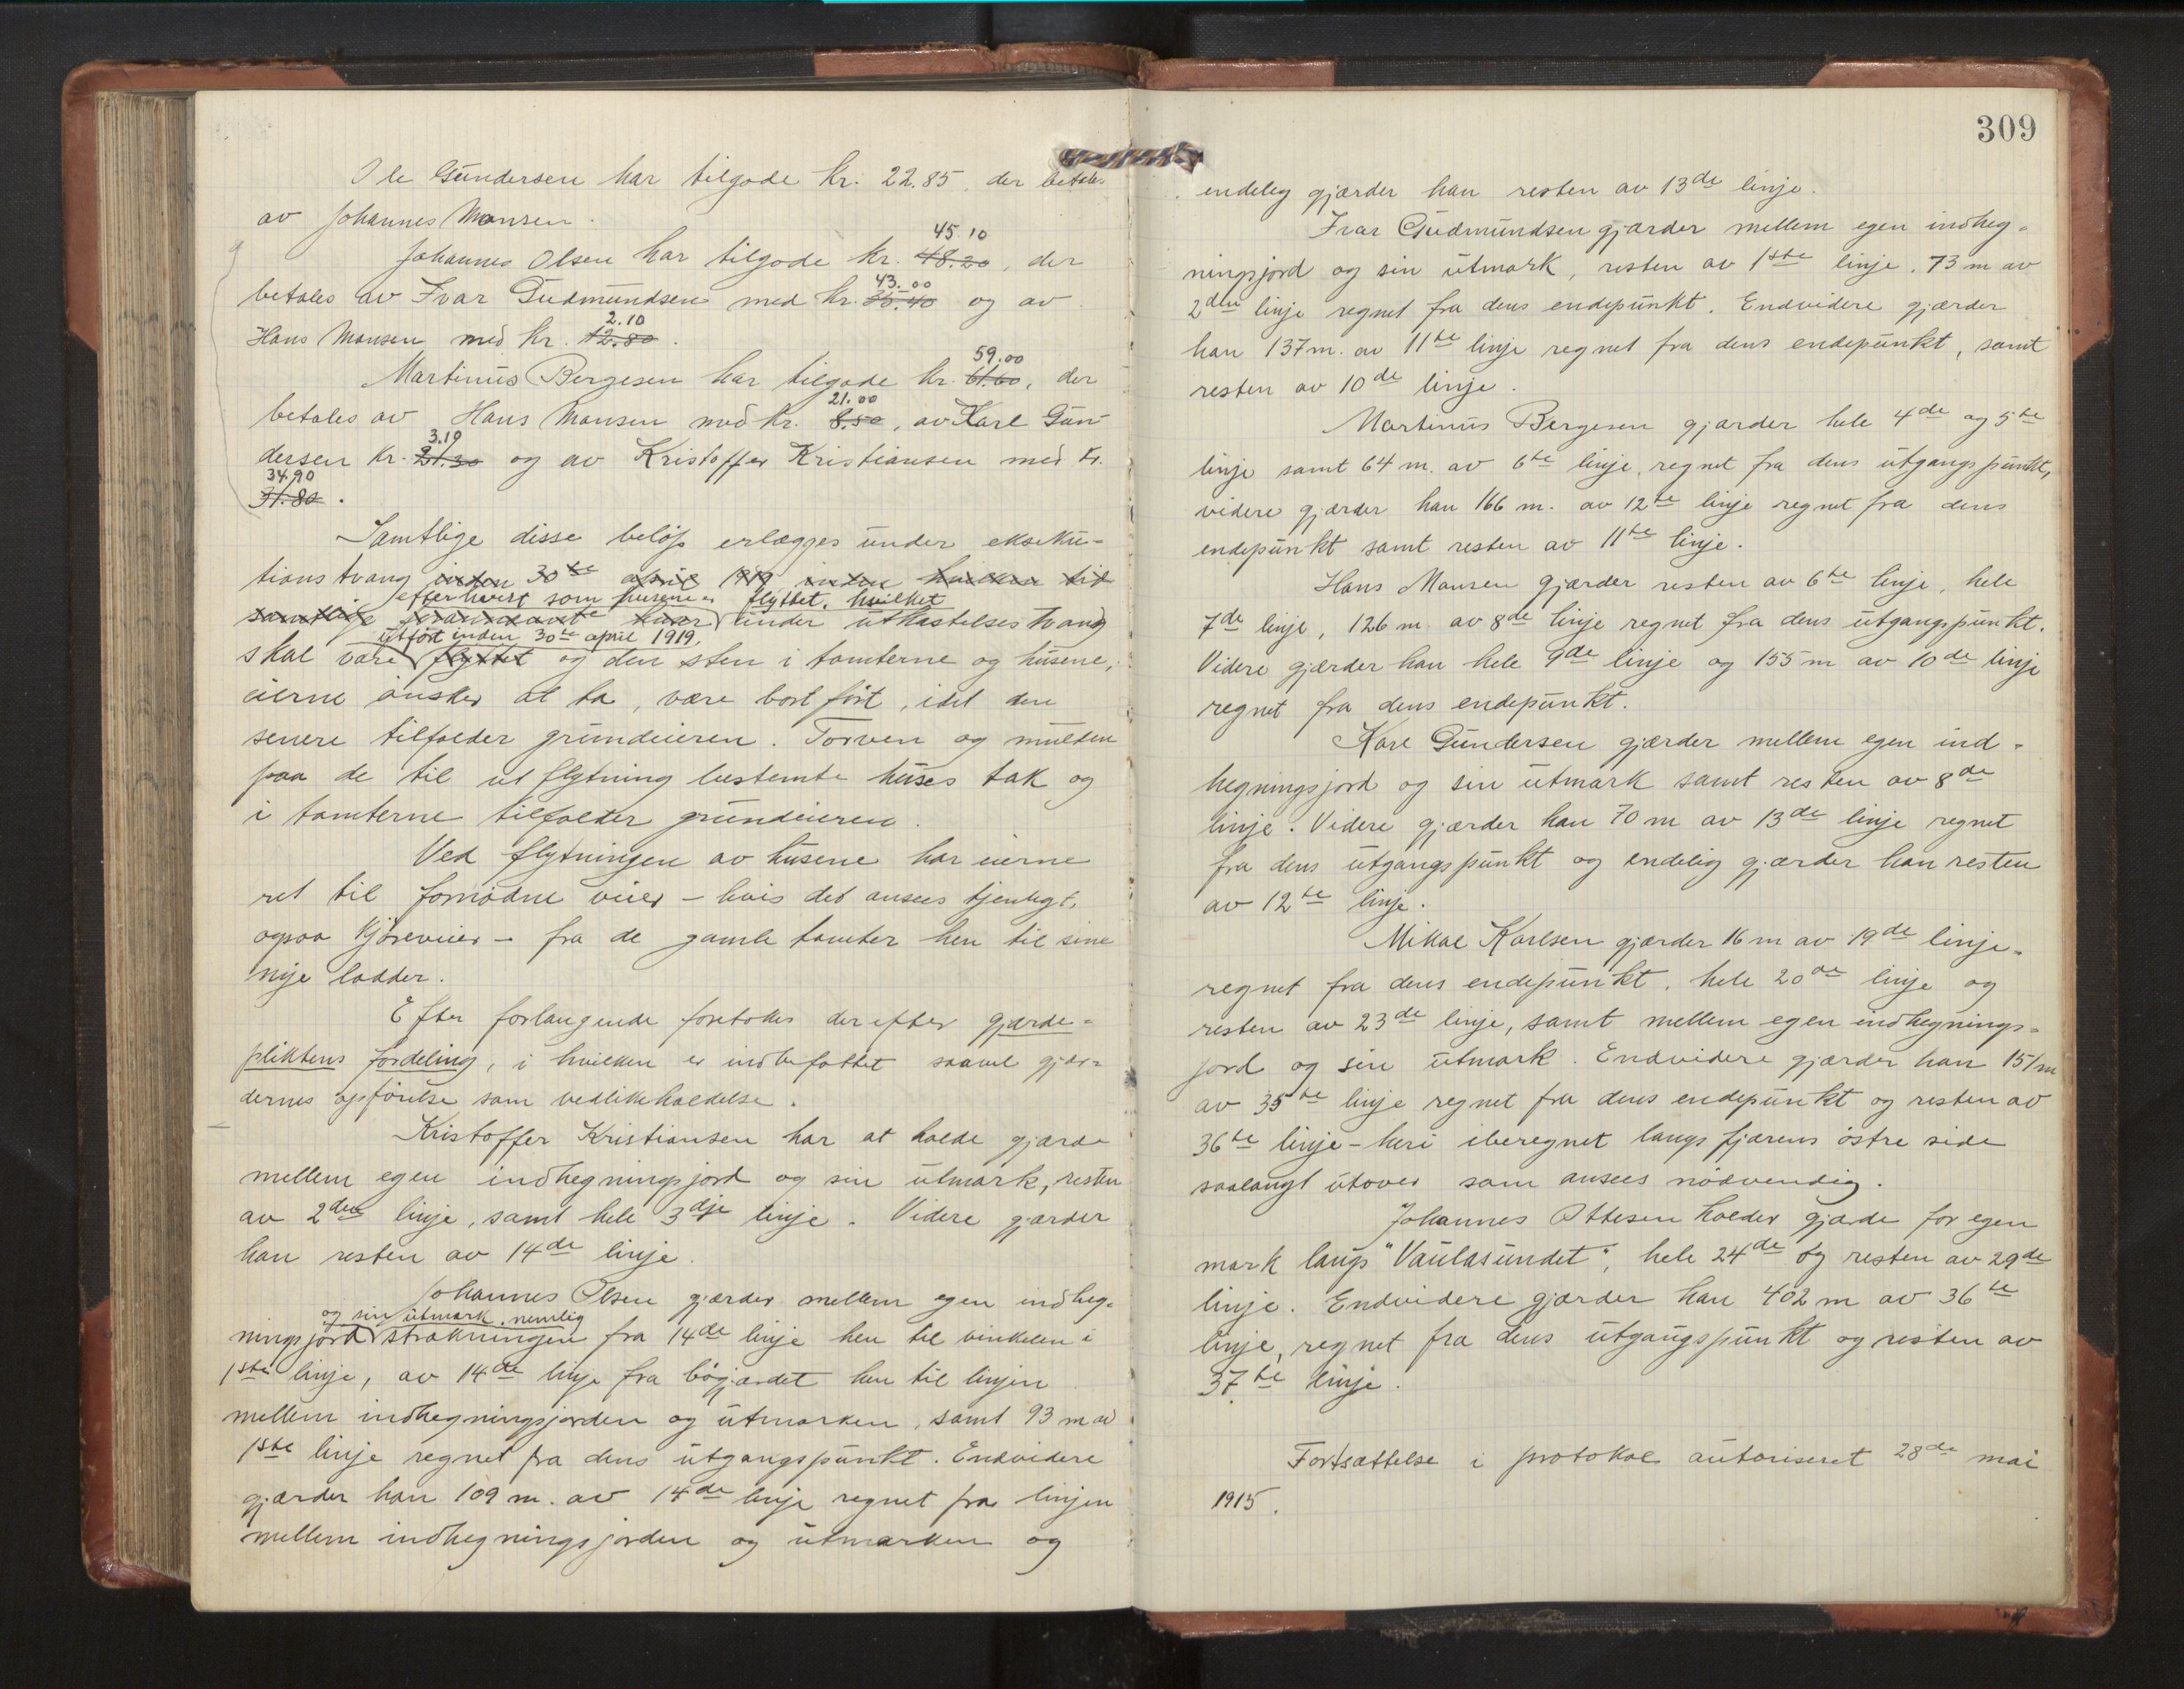 Ole Gundersen har tilgode kr. 22.85, der betales
av Johannes Monsen.
45.10
Johannes Olsen har tilgode kr. 48.20, der
43.00
betales av Ivar Gudmundsen med kr. 35.40 og av
2.10
Hans Monsen med kr. 12.80.
59.00
Martinus Bergesen har tilgode kr. 61.60, der
21.00
betales av Hans Monsen med kr. 8.50, av Karl Gun-
3.19
dersen kr. 21.30 og av Kristoffer Kristiansen med kr.
34.90
31.80.
Samtlige disse beløp erlægges under ekseku-
tionstvang inden 30te april 1919 inden hvilken tid
efterhvert som husene er flyttet, hvilket
samtlige forannævnte huser under utkastelsestvang
utført inden 30te april 1919,
skal være flyttet og den sten i tomterne og husene,
eierne ønsker at ta, være bortført, idet den
senere tilfalder grundeieren. Torven og mulden
paa de til utflytning bestemte huses tak og
i tomterne tilfalder grundeieren.
Ved flytningen av husene har eierne
ret til fornødne veier – hvis det ansees tjenligt,
ogsaa kjøreveier – fra de gamle tomter hen til sine
nye lodder.
Efter forlangende foretokes derefter gjærde-
pliktens fordeling, i hvilken er indbefattet saavel gjær-
dernes opførelse som vedlikeholdelse.
Kristoffer Kristiansen har at holde gjærde
mellem egen indhegningsjord og sin utmark, resten
av 2den linje, samt hele 3dje linje. Videre gjærder
han resten av 14de linje.
Johannes Olsen gjærder mellem egen indheg-
og sin utmark, nemlig
ningsjord strækningen fra 14de linje hen til vinkelen i
1ste linje, av 14de linje fra bøgjærdet hen til linjen
mellem indhegningsjorden og utmarken, samt 93 m av
1ste linje regnet fra dens utgangspunkt. Endvidere
gjærder han 109 m. av 14de linje regnet fra linjen
mellem indhegningsjorden og utmarken og
309
endelig gjærder han resten av 13de linje.
Ivar Gudmundsen gjærder mellem egen indheg-
ningsjord og sin utmark, resten av 1ste linje, 73 m av
2den linje regnet fra dens endepunkt. Endvidere gjærder
han 137 m. av 11te linje regnet fra dens endepunkt, samt
resten av 10de linje.
Martinus Bergesen gjærder hele 4de og 5te
linje samt 64 m. av 6te linje, regnet fra dens utgangspunkt,
videre gjærder han 166 m. av 12te linje regnet fra dens
endepunkt samt resten av 11te linje.
Hans Monsen gjærder resten av 6te linje, hele
7de linje, 126 m. av 8de linje regnet fra dens utgangspunkt.
Videre gjærder han hele 9de linje og 155 m av 10de linje
regnet fra dens endepunkt.
Karl Gundersen gjærder mellem egen ind-
hegningsjord og sin utmark samt resten av 8de
linje. Videre gjærder han 70 m av 13de linje regnet
fra dens utgangspunkt og endelig gjærder han resten
av 12te linje.
Mikal Karlsen gjærder 16 m av 19de linje,
regnet fra dens endepunkt, hele 20de linje og
resten av 23de linje, samt mellem egen indhegnings-
jord og sin utmark. Endvidere gjærder han 151 m
av 35te linje regnet fra dens endepunkt og resten av
36te linje – heri iberegnet langs fjærens østre side
saalangt utover som ansees nødvendig.
Johannes Ottesen holder gjærde for egen
mark langs "Vaulasundet", hele 24de og resten av 29de
linje. Endvidere gjærder han 402 m av 36te
linje, regnet fra dens utgangspunkt og resten av
37te linje.
Fortsættelse i protokol autoriseret 28de mai
1915.